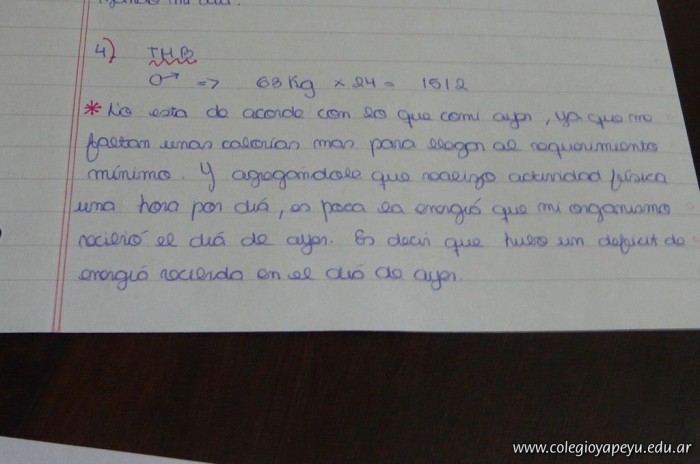 4) TMB
♂ => 63Kg x 24 = 1512
* No esta de acorde con lo que comi ayer, ya que me
faltan unas calorías mas para llegar al requerimiento
mínimo. Y agregandole que realizo actividad física
una hora por diá, es poca la energiá que mi organismo
recibió el diá de ayer. Es decir que hubo un deficit de
energiá recibida en el diá de ayer.
www.colegioyapeyu.edu.ar